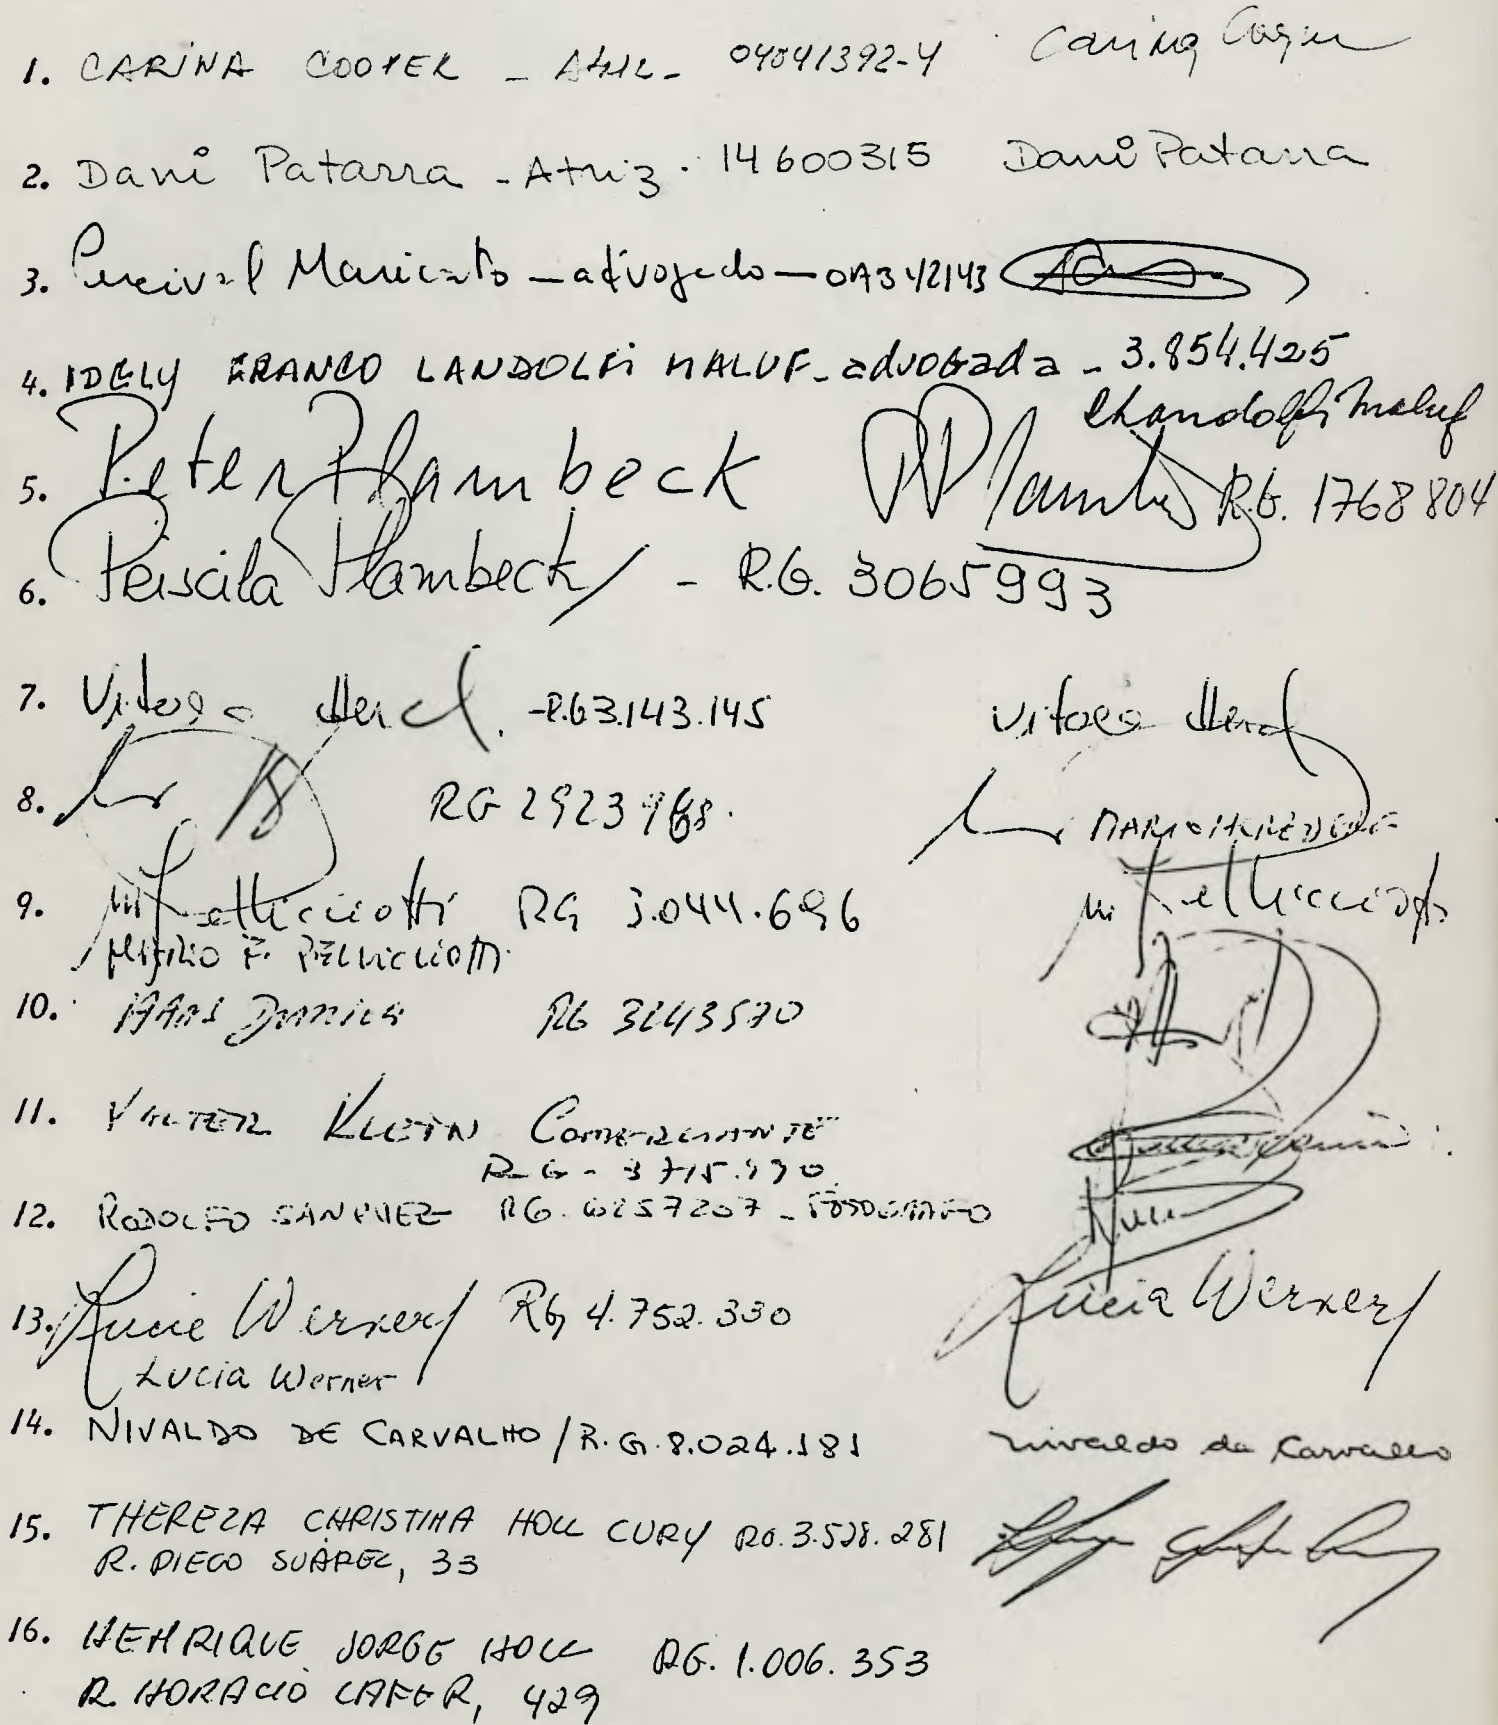 1. CARINA COOPER - Atriz - 04041392-4 Carina Cooper
2. Dani Patarra - Atriz. 14600315 Dani Patarra
3. Percival Maricato - advogado - OAB 42143
4. IDELY FRANCO LANDOLFI MALUF - advogada - 3.854.425
Landolfi Maluf
5. Peter Plambeck R.G. 1768804
6. Priscila Plambeck - R.G. 3065993
7. R.G 3.143.145
8. RG
9. Pellicciotti RG 3.044.696 Pellicciotti
F. PELLICCIOTTI
10. HANS RG 3243570
11. VALTER KLEIN COMERCIANTE
RG - 3715.990
12. RODOLFO SANCHEZ RG. 6257207 - FOTOGRAFO
13. Lucia Werner RG 4.752.330 Lucia Werner
Lucia Werner
14. NIVALDO DE CARVALHO / R.G. 8.024.181 Nivaldo de Carvalho
15. THEREZA CHRISTINA HOLL CURY RG. 3.528.281
R. DIEGO SUAREZ, 33
16. HENRIQUE JORGE HOLL RG. 1.006.353
R. HORACIO LAFER, 429